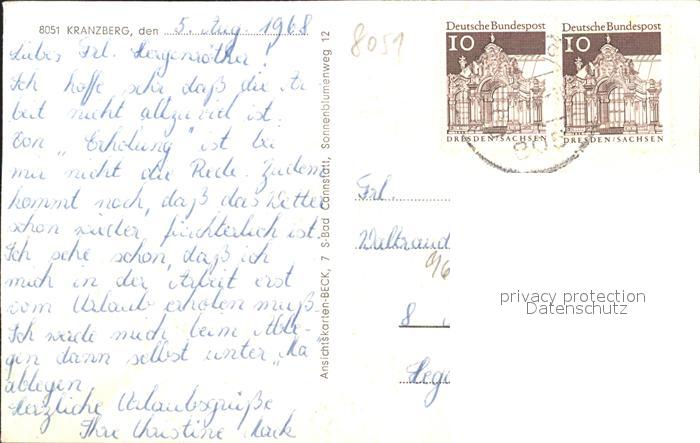 8051 KRANZBERG, den 5. Aug. 1968
Liebes Frl. Hergenröther!
Ich hoffe sehr daß die Ar-
beit nicht allzuviel ist.
Von "Erholung" ist bei
mir nicht die Rede. Zudem
kommt noch, daß das Wetter
schon wieder fürchterlich ist.
Ich sehe schon, daß ich
mich in der Arbeit erst
vom Urlaub erholen muß.
Ich werde mich beim Able-
gen dann selbst unter "Ma"
ablegen
Herzliche Urlaubsgrüße
Ihre Christine Mack
Ansichtskarten-BECK, 7 S-Bad Cannstatt, Sonnenblumenweg 12
8051
Deutsche Bundespost
10
DRESDEN/SACHSEN
Deutsche Bundespost
10
DRESDEN/SACHSEN
805
Frl.
Waltraud
8
privacy protection
Datenschutz